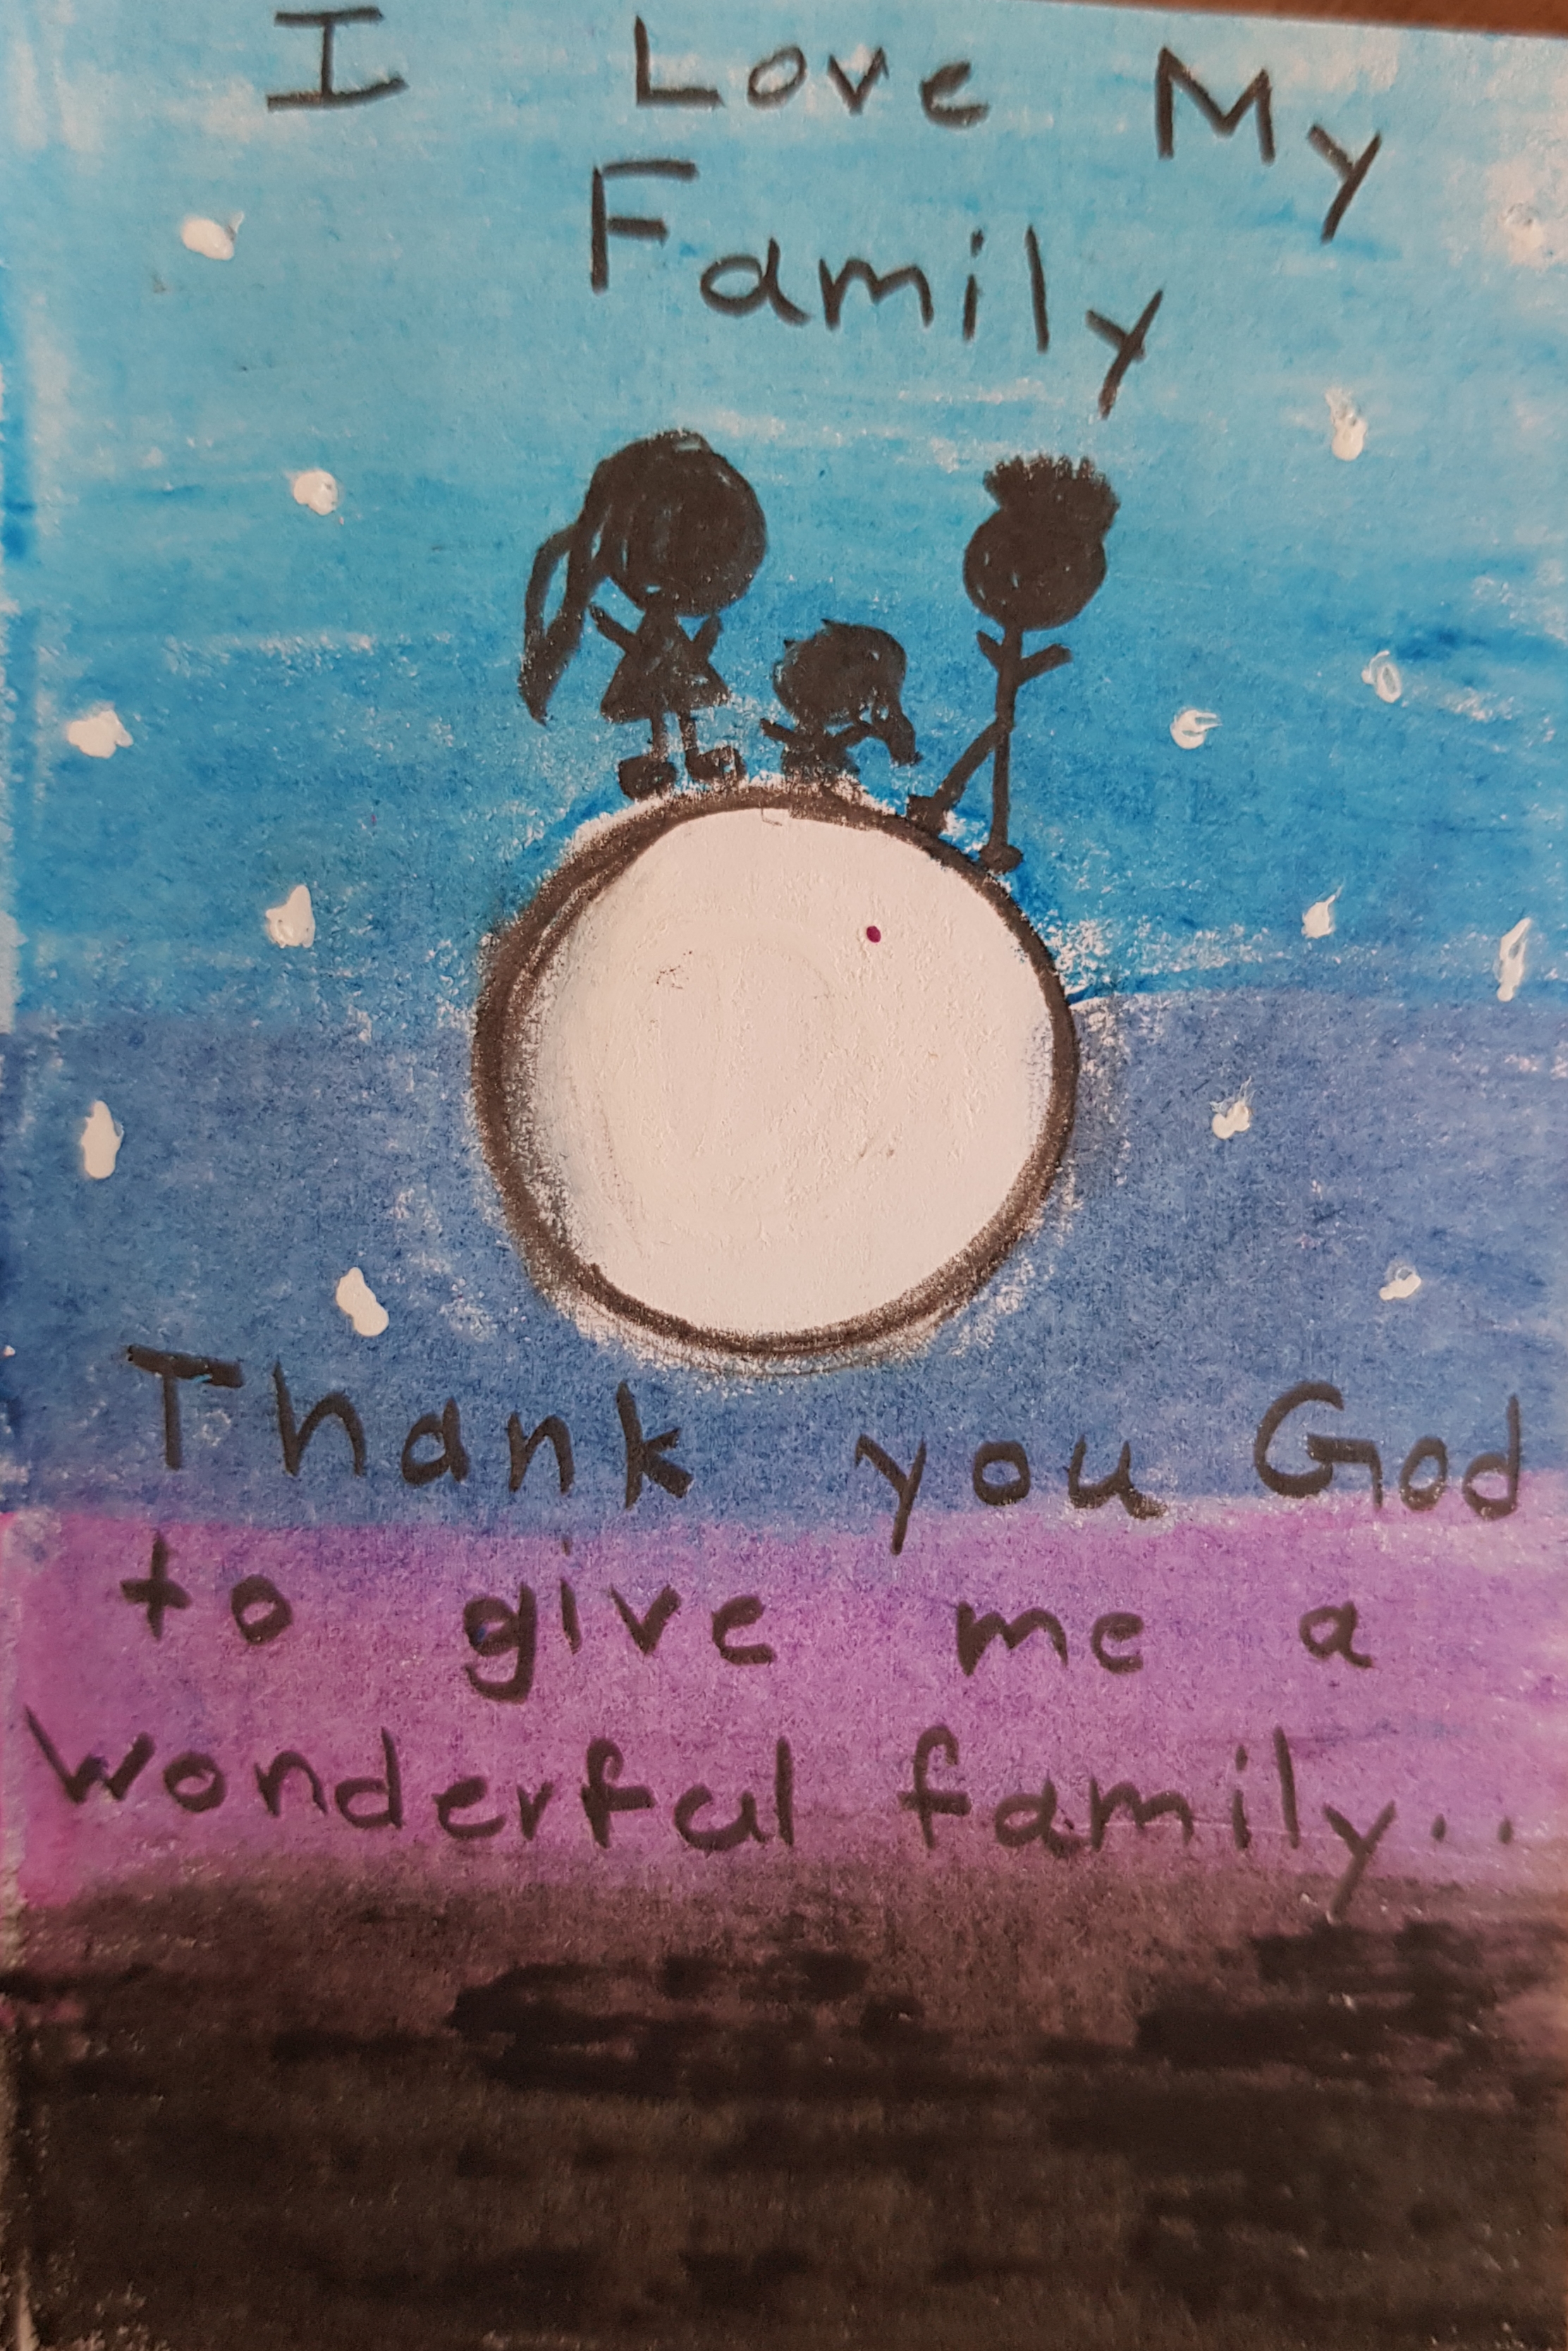 I Love My
Family
Thank you God
to give me a
wonderful family..